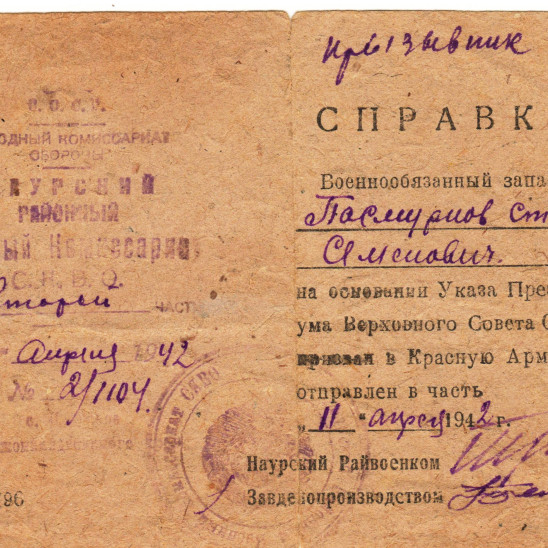 С. С. С. Р.
ОДНЫЙ КОМИССАРИАТ
ОБОРОНЫ
АУРСКИЙ
РАЙОННЫЙ
ный Комиссариат
С. К. В. О.
второй ЧАСТ
" апреля 1942
№ 2/1104.
96
призывник
СПРАВК
Военнообязанный запа
Пасмурнов Ст
Семенович.
на основании Указа През
ума Верховного Совета С
призван в Красную Арм
отправлен в часть
„ 11 " апреля 1942 г.
Наурский Райвоенком
Завделопроизводством